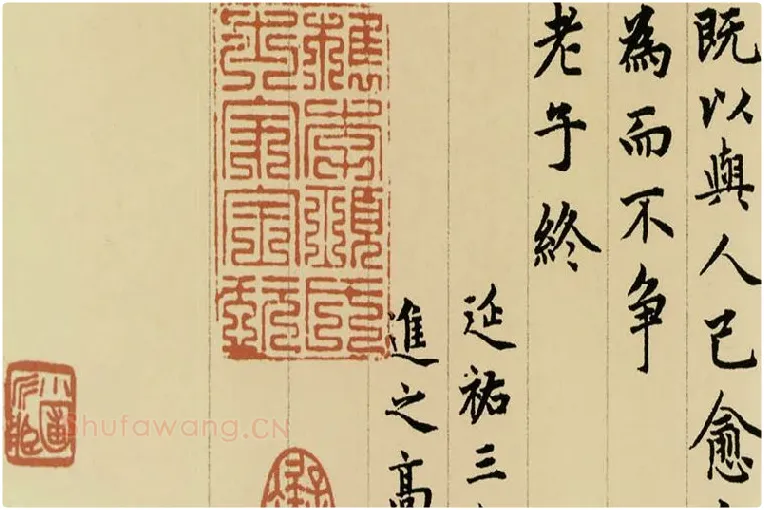 既以與人己愈
為而不争
老子終
延祐三
進之高
Shufawang.CN